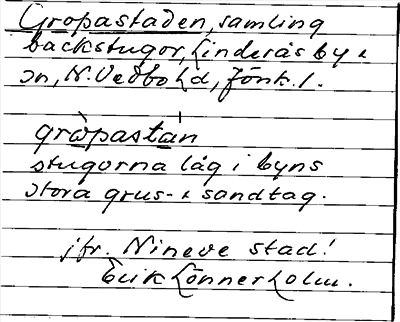 Gropastaden, samling
backstugor, Linderås by i
sn, N. Vedbo hd, Jönk. l.
gròpastan
stugorna låg i byns
stora grus- & sandtag.
jfr. Nineve stad!
Erik Lönnerholm.